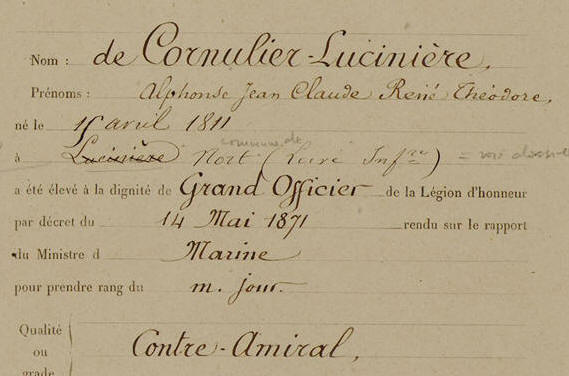 Nom : de Cornulier-Lucinière,
Prénoms : Alphonse Jean Claude René Théodore,
né le 15 avril 1811
commune de
à Lucinière Nort (Loire Infre) = voir
a été élevé à la dignité de Grand Officier de la Légion d'honneur
par décret du 14 Mai 1871 rendu sur le rapport
du Ministre d Marine
pour prendre rang du m. jour.
Qualité
ou Contre-Amiral,
grade